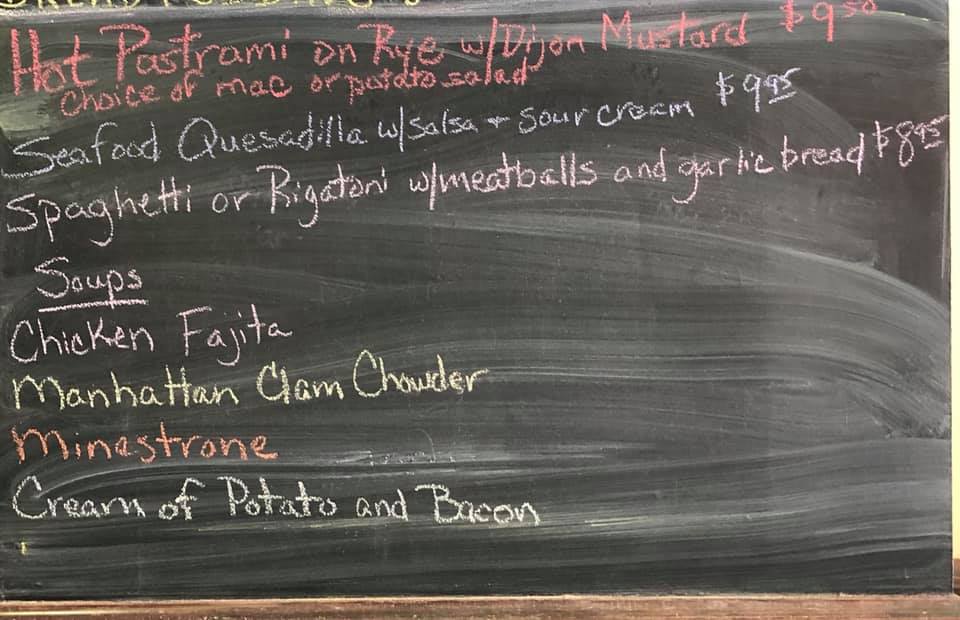 Hot Pastrami on Rye w/Dijon Mustard $9.50
Choice of mac or potato salad
Seafood Quesadilla w/salsa + sour cream $9.95
Spaghetti or Rigatoni w/meatballs and garlic bread $8.95
Soups
Chicken Fajita
Manhattan Clam Chowder
Minestrone
Cream of Potato and Bacon